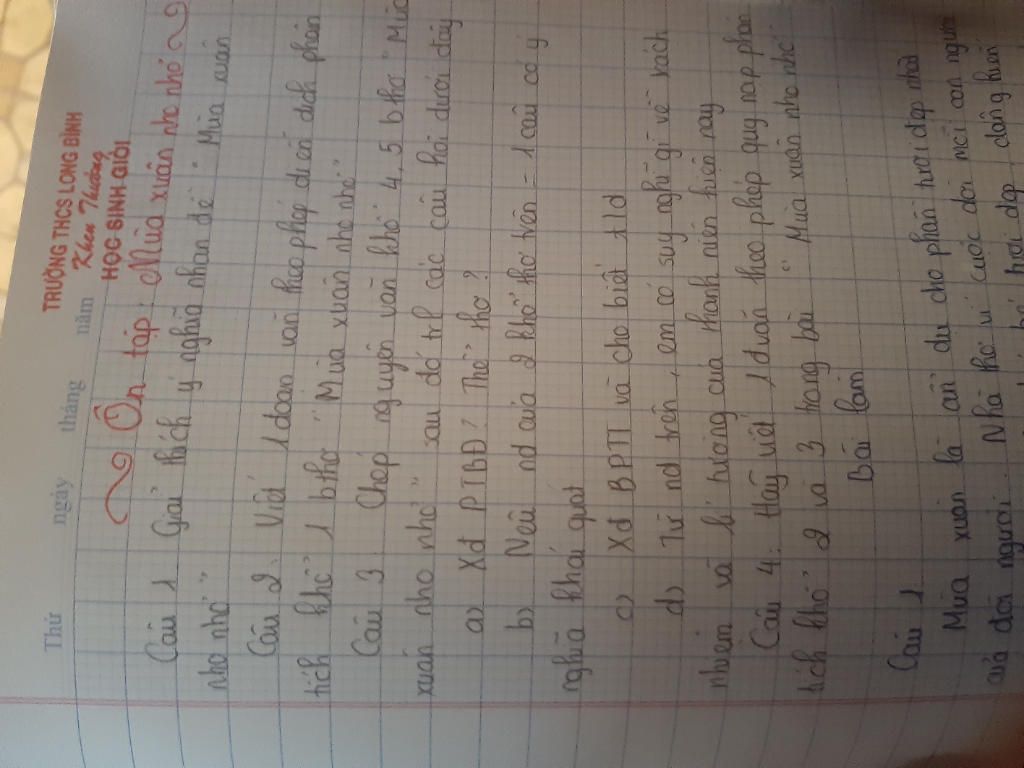 TRƯỜNG THCS LONG BÌNH
Khen Thưởng
HỌC SINH GIỎI
Thứ ngày tháng năm
Ôn tập: Mùa xuân nho nhỏ
Câu 1 Giải thích ý nghĩa nhan đề "Mùa xuân
nho nhỏ"
Câu 2: Viết 1 đoạn văn theo phép d để phân
tích khổ 1 bthơ "Mùa xuân nho nhỏ"
Câu 3: Chép nguyên văn khổ 4, 5 bthơ "Mùa
xuân nho nhỏ" sau đó trl các câu hỏi dưới đây
a) Xđ PTBĐ? Thể thơ?
b) Nêu nd của 2 khổ thơ trên = 1 câu có ý
nghĩa khái quát
c) Xđ BPTT và cho biết tld
d) Từ nd trên, em có suy nghĩ gì về trách
nhiệm và lí tưởng của thanh niên hiện nay
Câu 4: Hãy viết 1 đvăn theo phép quy nạp phân
tích khổ 2 và 3 trong bài "Mùa xuân nho nhỏ"
Bài làm
Câu 1
Mùa xuân là ẩn dụ cho phần tươi đẹp nhất
của đời người. Nhà thơ ví cuộc đời mỗi con người
tươi đẹp, dâng hiến